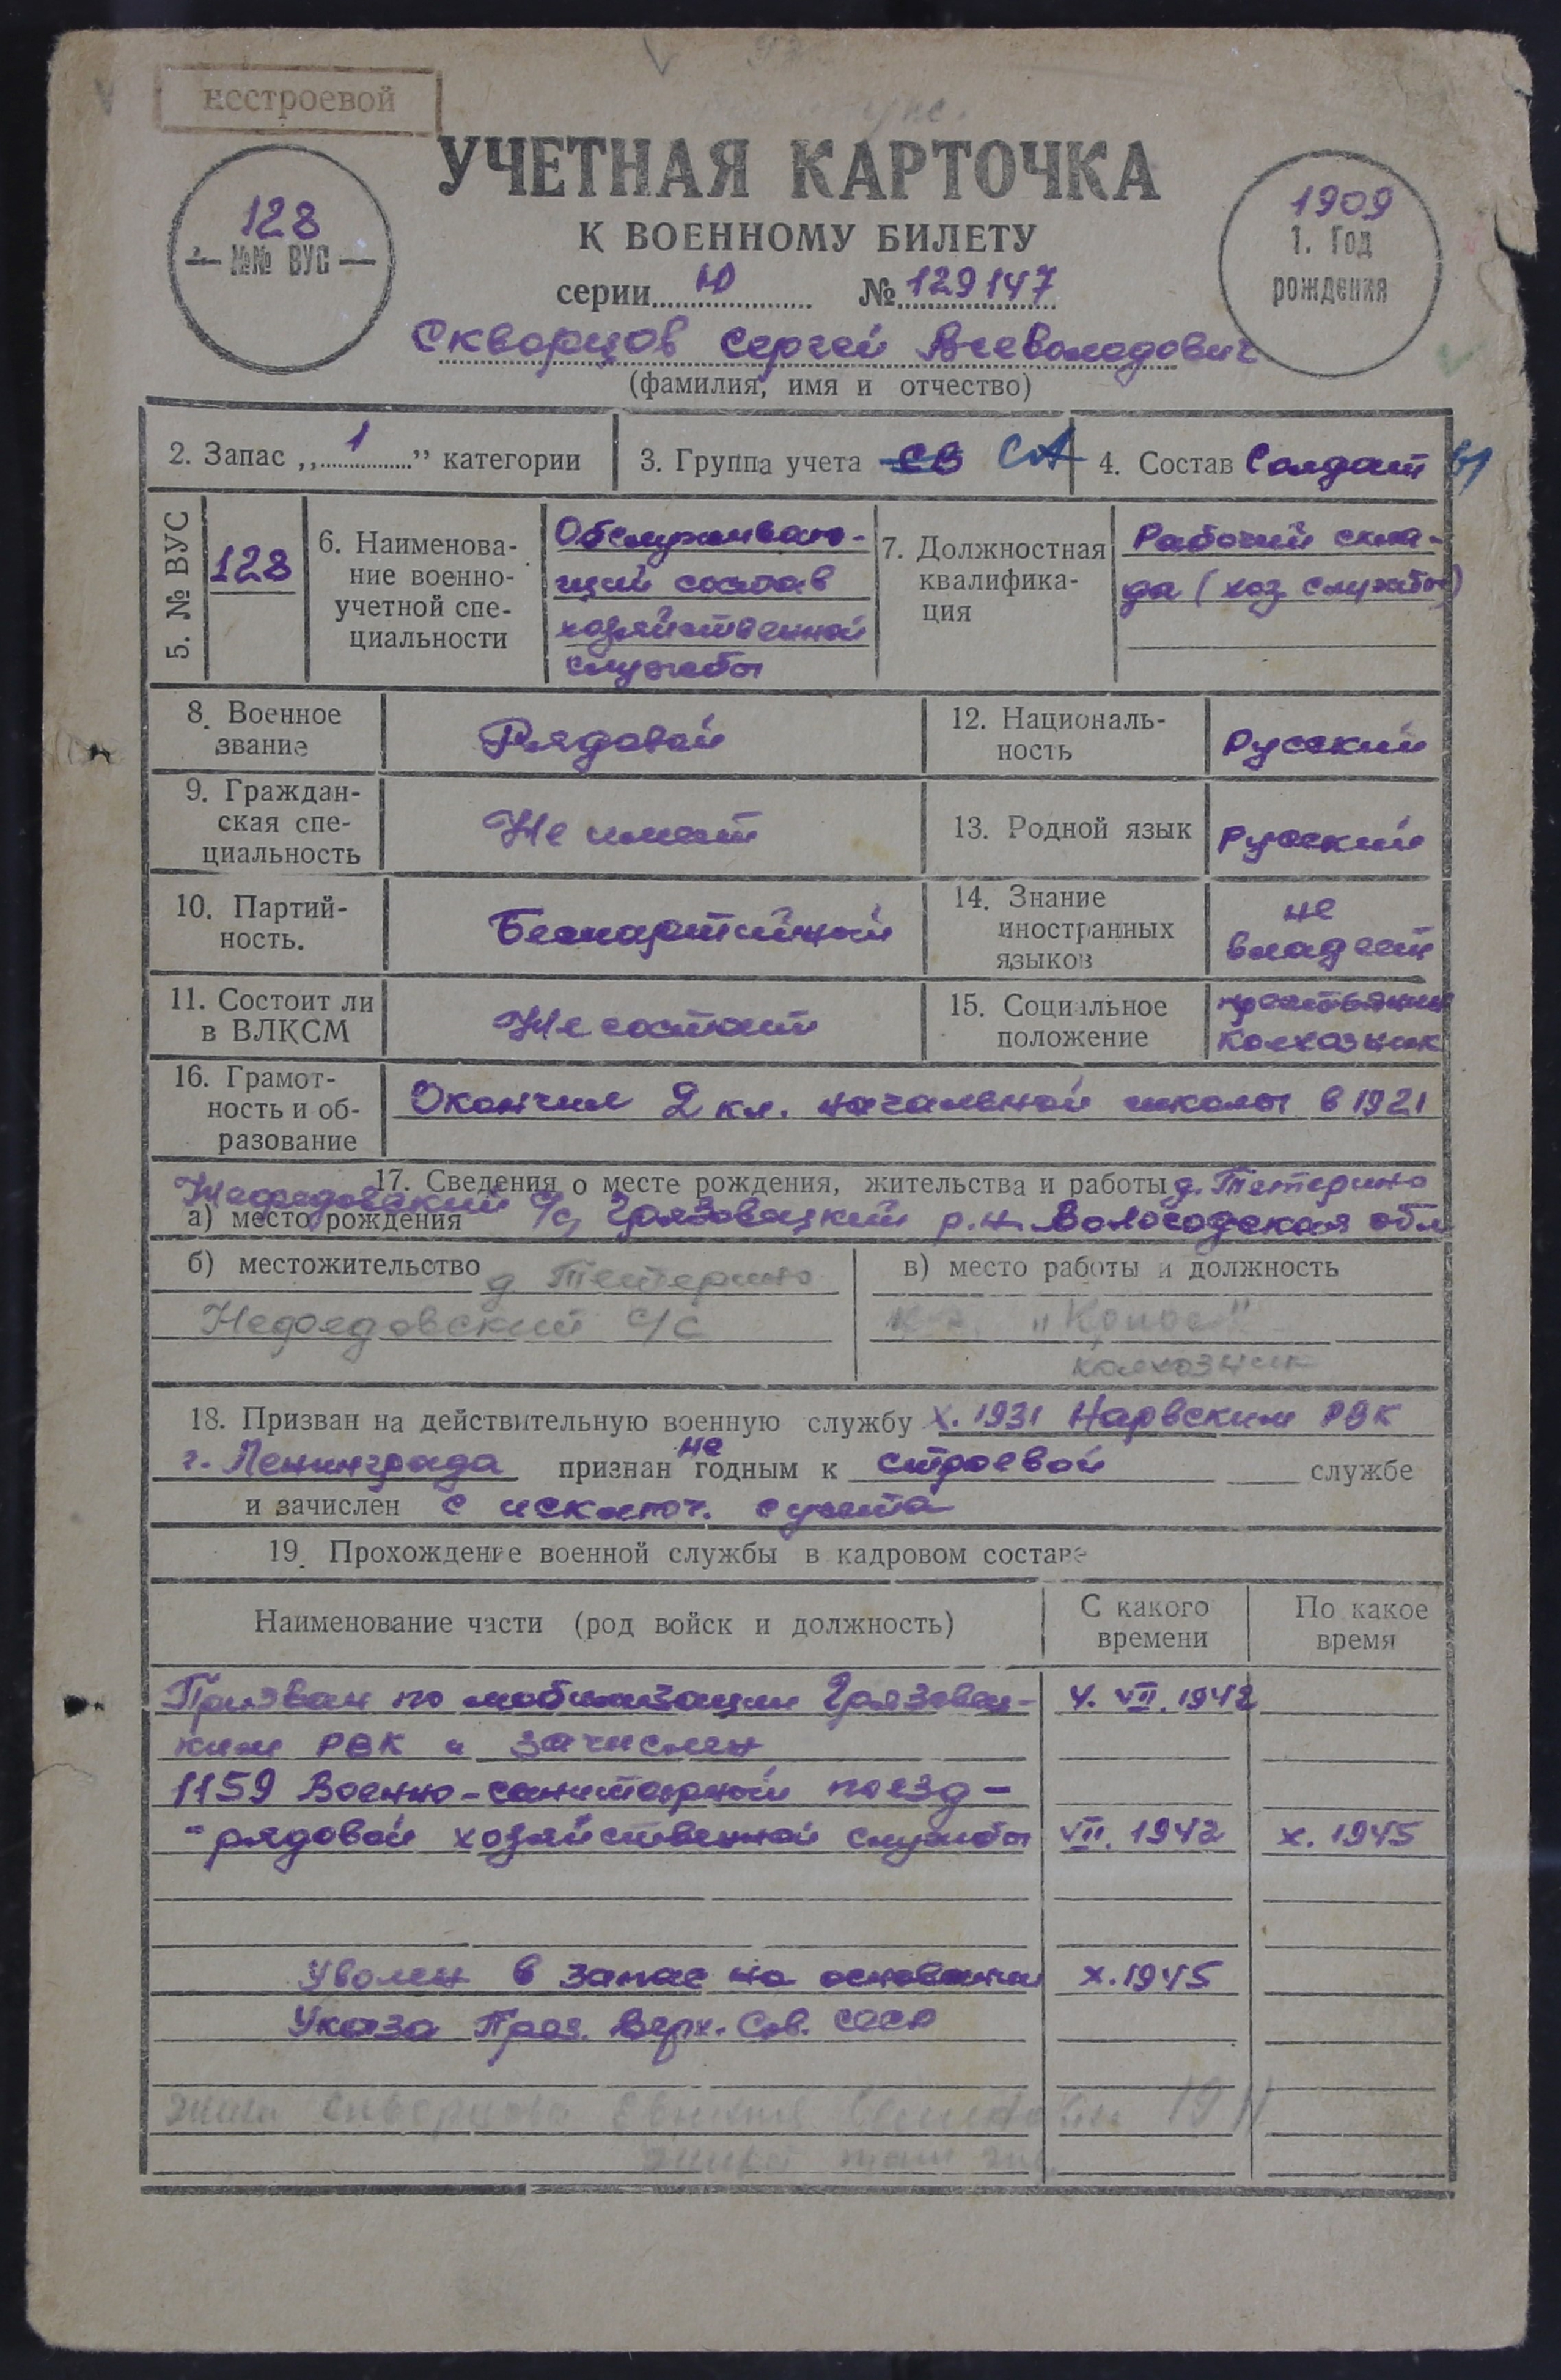 нестроевой
УЧЕТНАЯ КАРТОЧКА
К ВОЕННОМУ БИЛЕТУ
128
№№ ВУС
1909
1. Год
рождения
серии Ю № 129147
Скворцов Сергей Всеволодович
(фамилия, имя и отчество)
2. Запас „ 1 ” категории
3. Группа учета СВ СА
4. Состав Солдат
5. № ВУС
128
6. Наименова-
ние военно-
учетной спе-
циальности
Обслуживаю-
щий состав
хозяйственной
службы
7. Должностная
квалифика-
ция
Рабочий скла-
да (хоз службы)
8. Военное
звание
Рядовой
12. Националь-
ность
Русский
9. Граждан-
ская спе-
циальность
Не имеет
13. Родной язык
Русский
10. Партий-
ность.
Беспартийный
14. Знание
иностранных
языков
не
владеет
11. Состоит ли
в ВЛКСМ
Не состоит
15. Социальное
положение
крестьянин
колхозник
16. Грамот-
ность и об-
разование
Окончил 2 кл. начальной школы в 1921
17. Сведения о месте рождения, жительства и работы д. Тетерино
а) место рождения Нефедовский с/с, Грязовецкий р.н. Вологодская обл
б) местожительство д Тетерино
Нефедовский с/с
в) место работы и должность
"Колос"
колхозник
18. Призван на действительную военную службу X. 1931 Нарвским РВК
г. Ленинграда признан не годным к строевой службе
и зачислен с исключ. с учета
19. Прохождение военной службы в кадровом составе
Наименование части (род войск и должность)
С какого
времени
По какое
время
Призван по мобилизации Грязовец- 4. VII. 1942
ким РВК и зачислен
1159 Военно-санитарный поезд -
- рядовой хозяйственной службы VII. 1942 X. 1945
Уволен в запас на основании X. 1945
Указа През. Верх. Сов. СССР
жена Скворцова 19